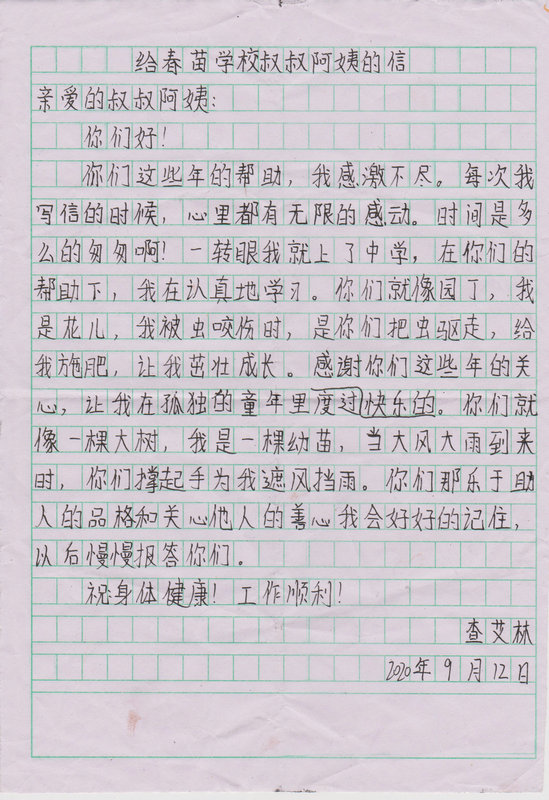 给春苗学校叔叔阿姨的信
亲爱的叔叔阿姨：
你们好！
你们这些年的帮助，我感激不尽。每次我
写信的时候，心里都有无限的感动。时间是多
么的匆匆啊！一转眼我就上了中学，在你们的
帮助下，我在认真地学习。你们就像园丁，我
是花儿，我被虫咬伤时，是你们把虫驱走，给
我施肥，让我茁壮成长。感谢你们这些年的关
心，让我在孤独的童年里度过快乐的。你们就
像一棵大树，我是一棵幼苗，当大风大雨到来
时，你们撑起手为我遮风挡雨。你们那乐于助
人的品格和关心他人的善心我会好好的记住，
以后慢慢报答你们。
祝身体健康！工作顺利！
查艾林
2020年9月12日